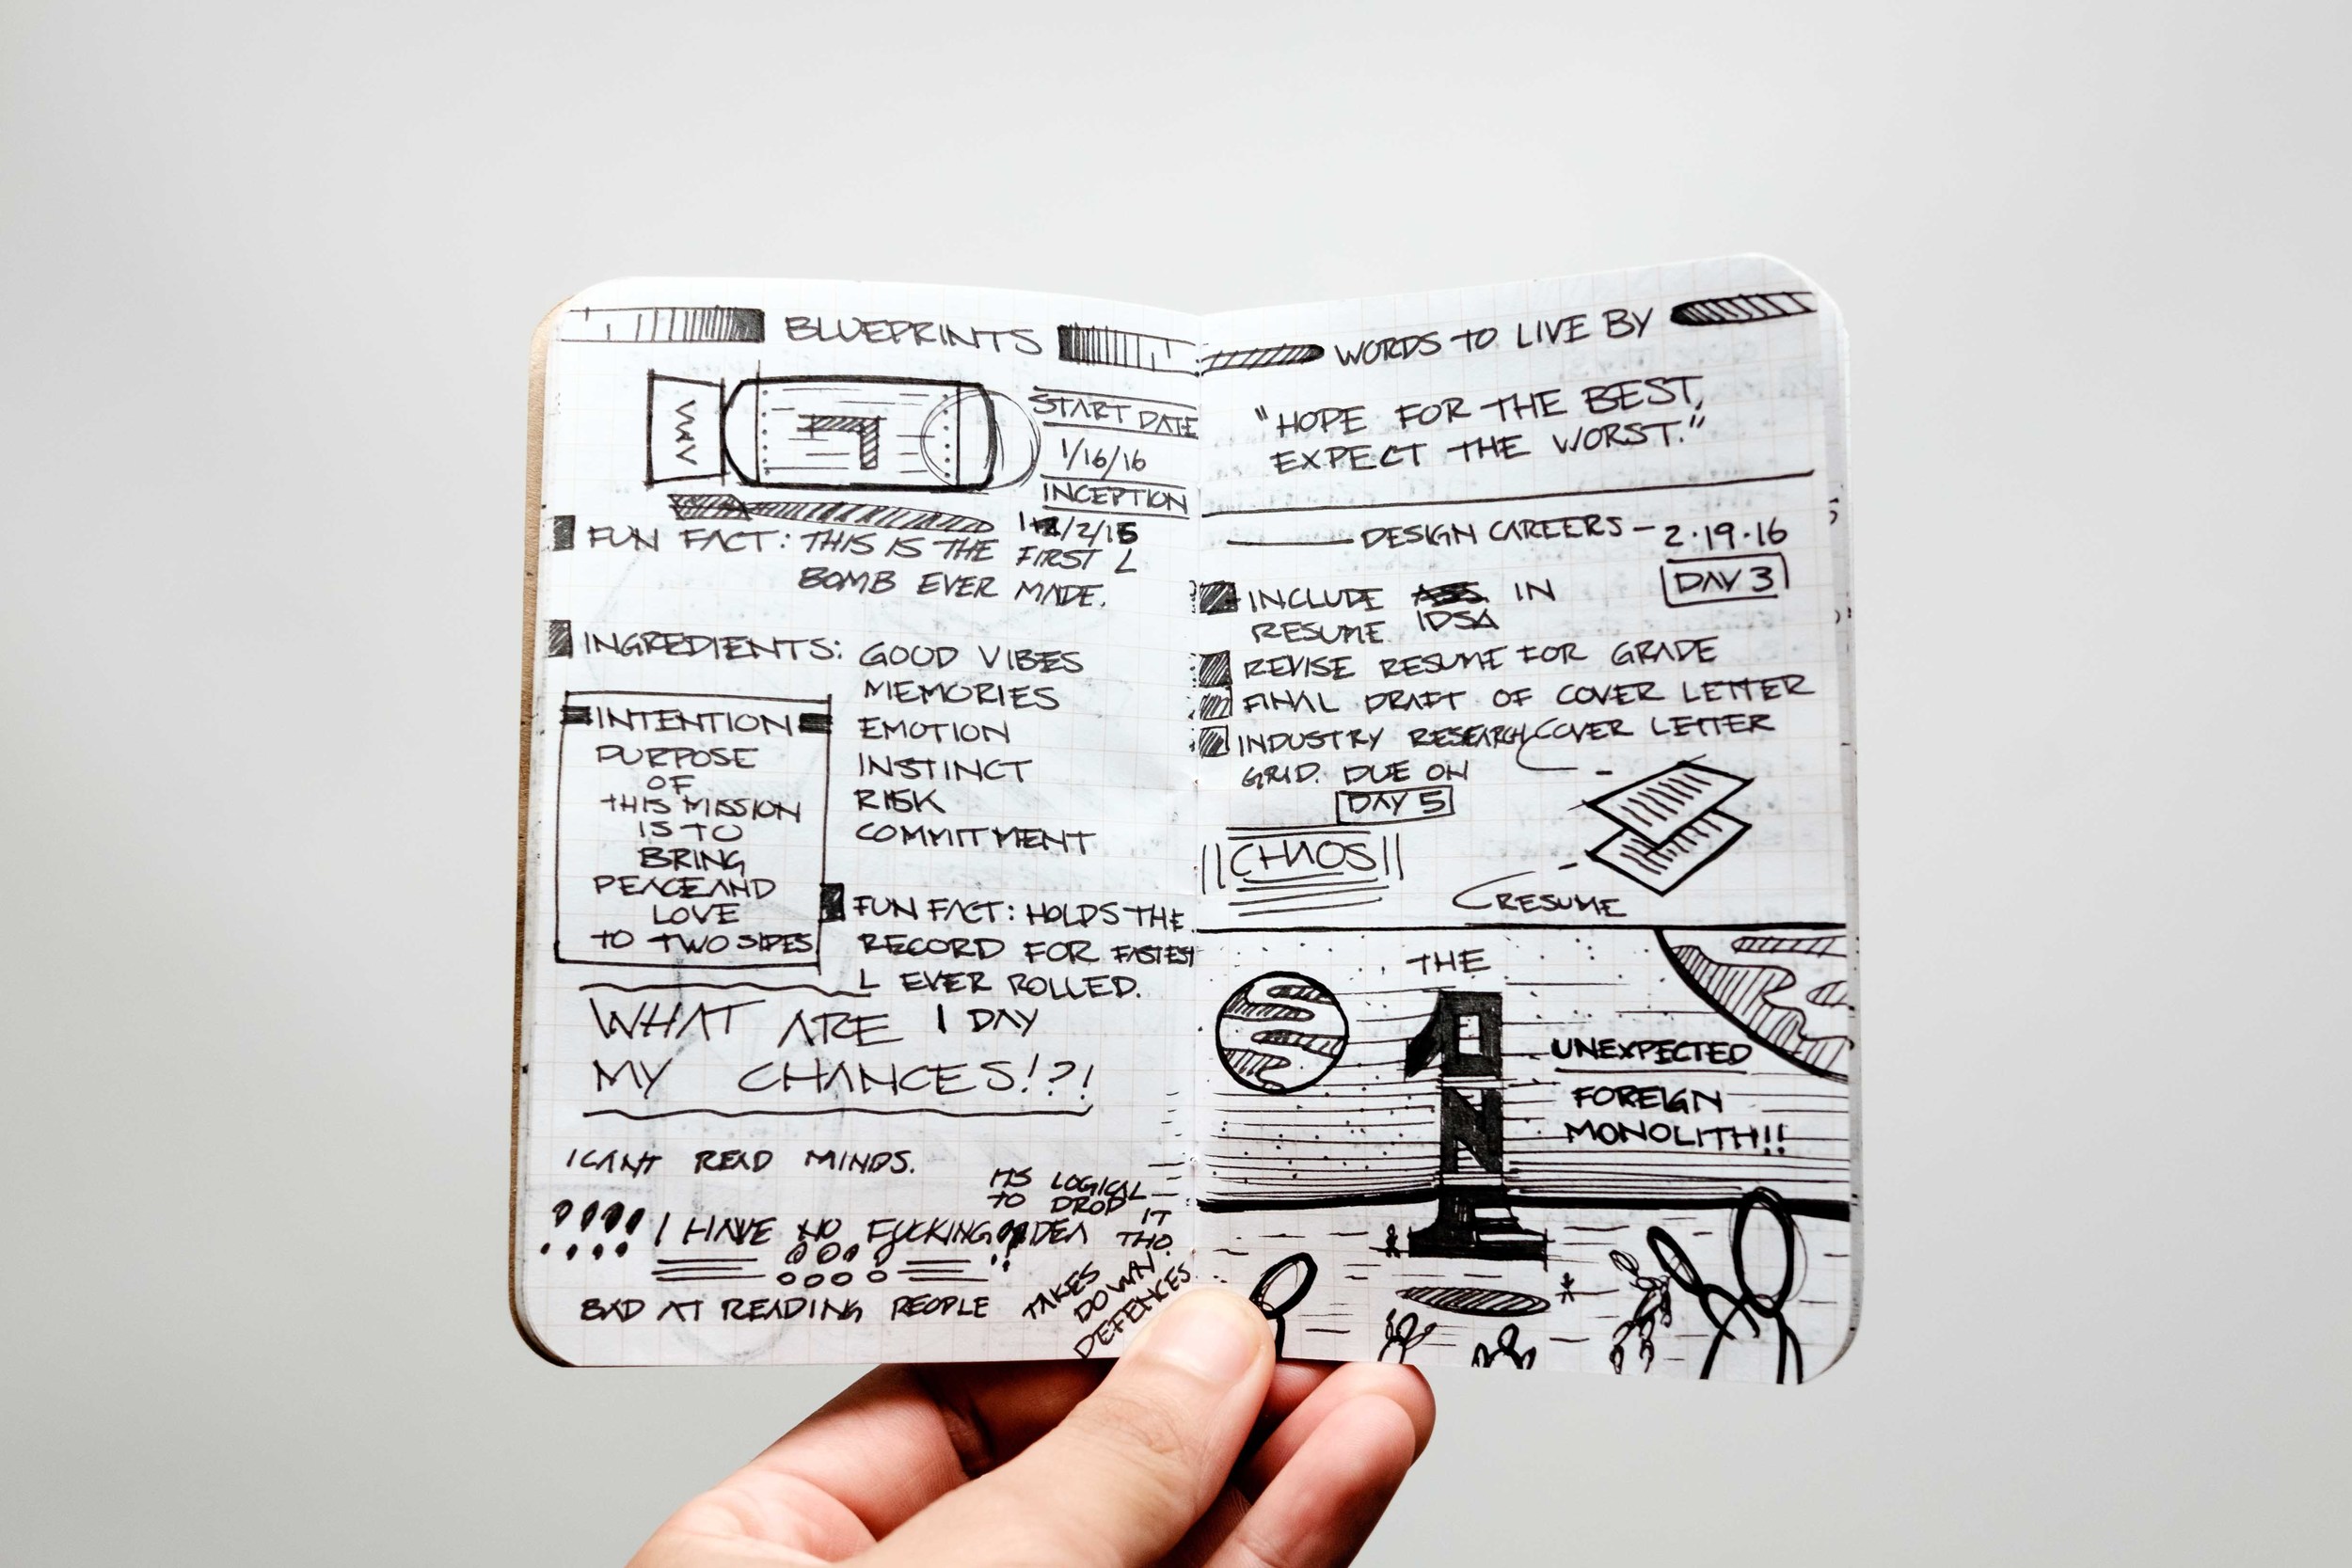 BLUEPRINTS
START DATE
1/16/16
INCEPTION
/2/15
FUN FACT: THIS IS THE FIRST L
BOMB EVER MADE.
INGREDIENTS: GOOD VIBES
MEMORIES
EMOTION
INSTINCT
RISK
COMMITMENT
INTENTION
PURPOSE
OF
THIS MISSION
IS TO
BRING
PEACE AND
LOVE
TO TWO SIDES
FUN FACT: HOLDS THE
RECORD FOR FASTEST
L EVER ROLLED.
1 DAY
WHAT ARE
MY CHANCES!?!
I CANT READ MINDS.
ITS LOGICAL
TO DROP
IT
THO.
!!!! I HAVE NO FUCKING IDEA
BAD AT READING PEOPLE
TAKES
DOWN
DEFENCES
WORDS TO LIVE BY
"HOPE FOR THE BEST,
EXPECT THE WORST."
DESIGN CAREERS - 2.19.16
DAY 3
INCLUDE IN
RESUME IDSA
REVISE RESUME FOR GRADE
FINAL DRAFT OF COVER LETTER
INDUSTRY RESEARCH
GRID. DUE ON
DAY 5
COVER LETTER
CHAOS
RESUME
THE
ONE
UNEXPECTED
FOREIGN
MONOLITH!!